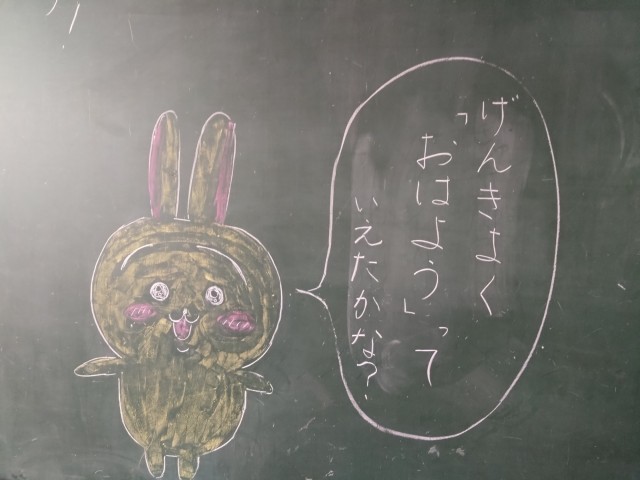 げんきよく
「おはよう」って
いえたかな?